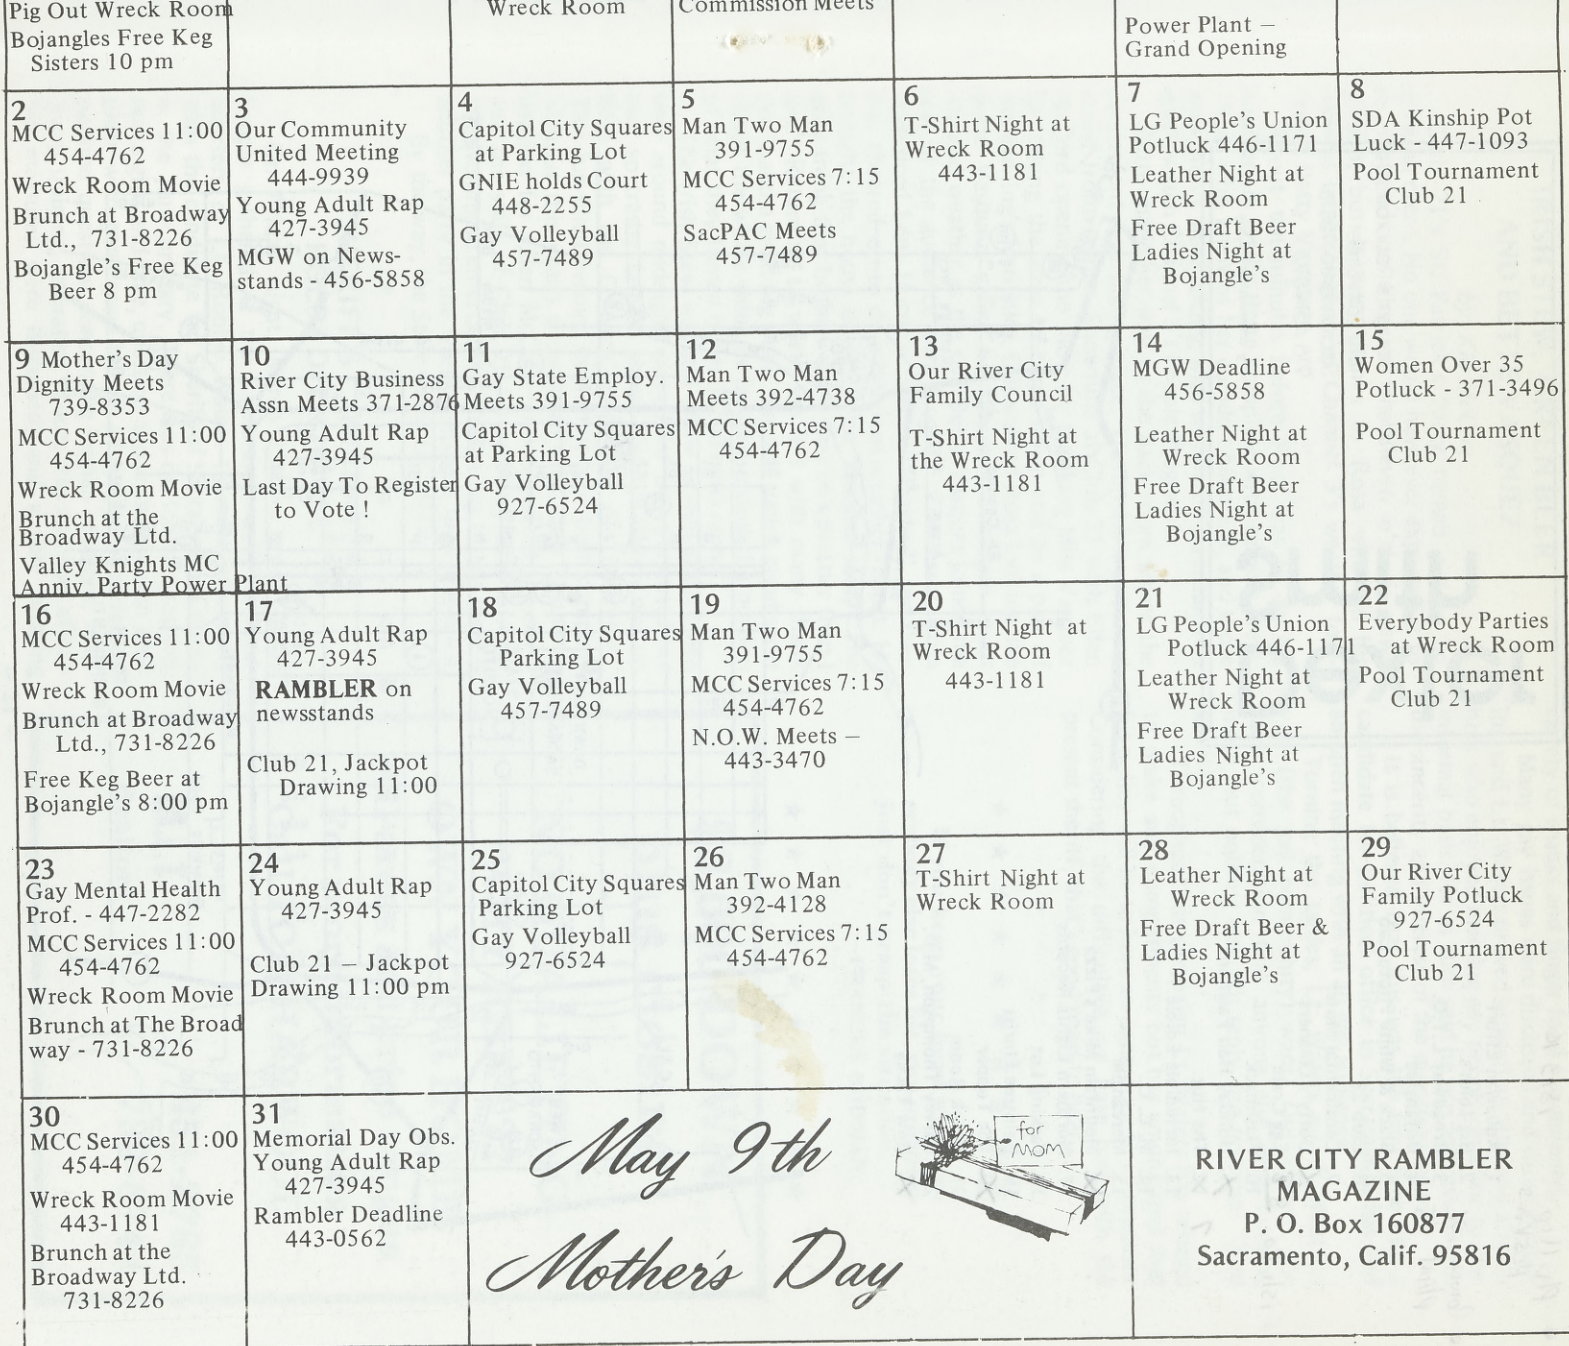 Pig Out Wreck Room
Bojangles Free Keg
Sisters 10 pm
Wreck Room
Commission Meets
Power Plant –
Grand Opening
2
MCC Services 11:00
454-4762
Wreck Room Movie
Brunch at Broadway
Ltd., 731-8226
Bojangle's Free Keg
Beer 8 pm
3
Our Community
United Meeting
444-9939
Young Adult Rap
427-3945
MGW on News-
stands - 456-5858
4
Capitol City Squares
at Parking Lot
GNIE holds Court
448-2255
Gay Volleyball
457-7489
5
Man Two Man
391-9755
MCC Services 7:15
454-4762
SacPAC Meets
457-7489
6
T-Shirt Night at
Wreck Room
443-1181
7
LG People's Union
Potluck 446-1171
Leather Night at
Wreck Room
Free Draft Beer
Ladies Night at
Bojangle's
8
SDA Kinship Pot
Luck - 447-1093
Pool Tournament
Club 21
9 Mother's Day
Dignity Meets
739-8353
MCC Services 11:00
454-4762
Wreck Room Movie
Brunch at the
Broadway Ltd.
Valley Knights MC
Anniv. Party Power Plant
10
River City Business
Assn Meets 371-2876
Young Adult Rap
427-3945
Last Day To Register
to Vote !
11
Gay State Employ.
Meets 391-9755
Capitol City Squares
at Parking Lot
Gay Volleyball
927-6524
12
Man Two Man
Meets 392-4738
MCC Services 7:15
454-4762
13
Our River City
Family Council
T-Shirt Night at
the Wreck Room
443-1181
14
MGW Deadline
456-5858
Leather Night at
Wreck Room
Free Draft Beer
Ladies Night at
Bojangle's
15
Women Over 35
Potluck - 371-3496
Pool Tournament
Club 21
16
MCC Services 11:00
454-4762
Wreck Room Movie
Brunch at Broadway
Ltd., 731-8226
Free Keg Beer at
Bojangle's 8:00 pm
17
Young Adult Rap
427-3945
RAMBLER on
newsstands
Club 21, Jackpot
Drawing 11:00
18
Capitol City Squares
Parking Lot
Gay Volleyball
457-7489
19
Man Two Man
391-9755
MCC Services 7:15
454-4762
N.O.W. Meets –
443-3470
20
T-Shirt Night at
Wreck Room
443-1181
21
LG People's Union
Potluck 446-1171
Leather Night at
Wreck Room
Free Draft Beer
Ladies Night at
Bojangle's
22
Everybody Parties
at Wreck Room
Pool Tournament
Club 21
23
Gay Mental Health
Prof. - 447-2282
MCC Services 11:00
454-4762
Wreck Room Movie
Brunch at The Broad
way - 731-8226
24
Young Adult Rap
427-3945
Club 21 – Jackpot
Drawing 11:00 pm
25
Capitol City Squares
Parking Lot
Gay Volleyball
927-6524
26
Man Two Man
392-4128
MCC Services 7:15
454-4762
27
T-Shirt Night at
Wreck Room
28
Leather Night at
Wreck Room
Free Draft Beer &
Ladies Night at
Bojangle's
29
Our River City
Family Potluck
927-6524
Pool Tournament
Club 21
30
MCC Services 11:00
454-4762
Wreck Room Movie
443-1181
Brunch at the
Broadway Ltd.
731-8226
31
Memorial Day Obs.
Young Adult Rap
427-3945
Rambler Deadline
443-0562
May 9th
Mother's Day
for
MOM
RIVER CITY RAMBLER
MAGAZINE
P. O. Box 160877
Sacramento, Calif. 95816